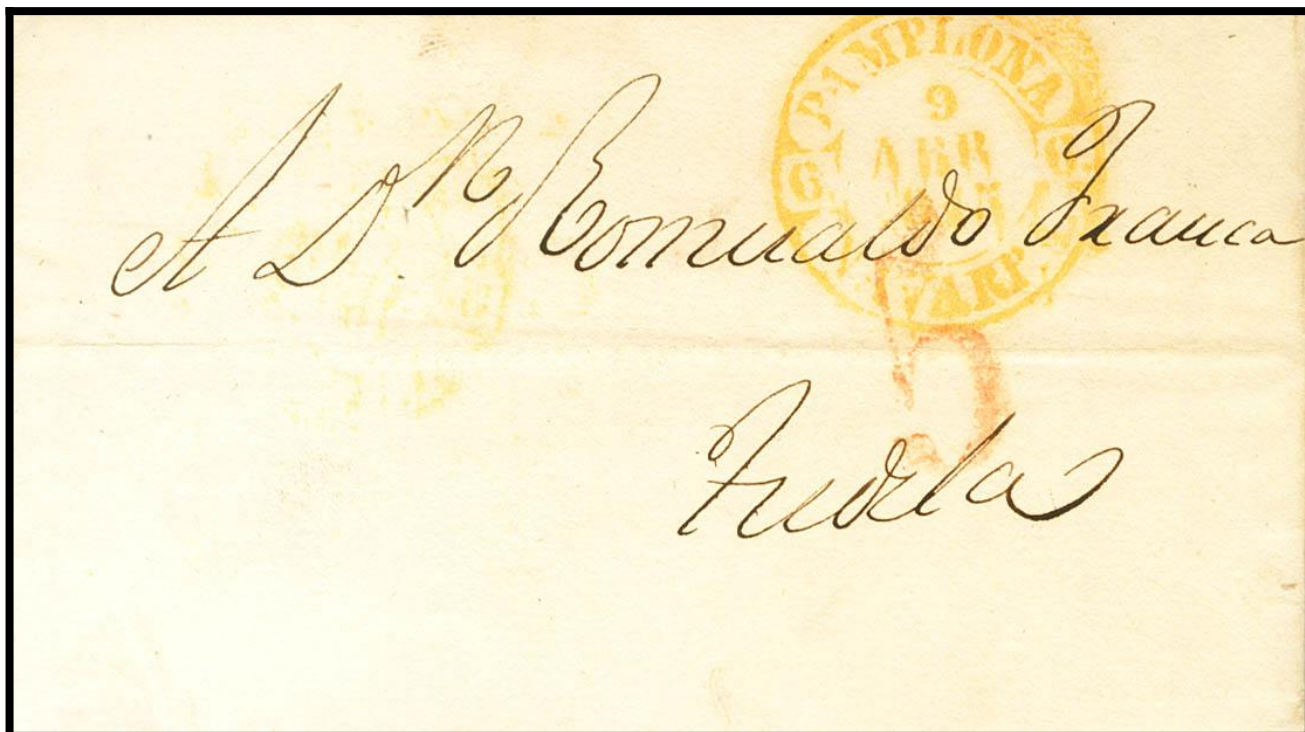 PAMPLONA
9
ABR
A Dn. Romualdo Franca
5
Tudela